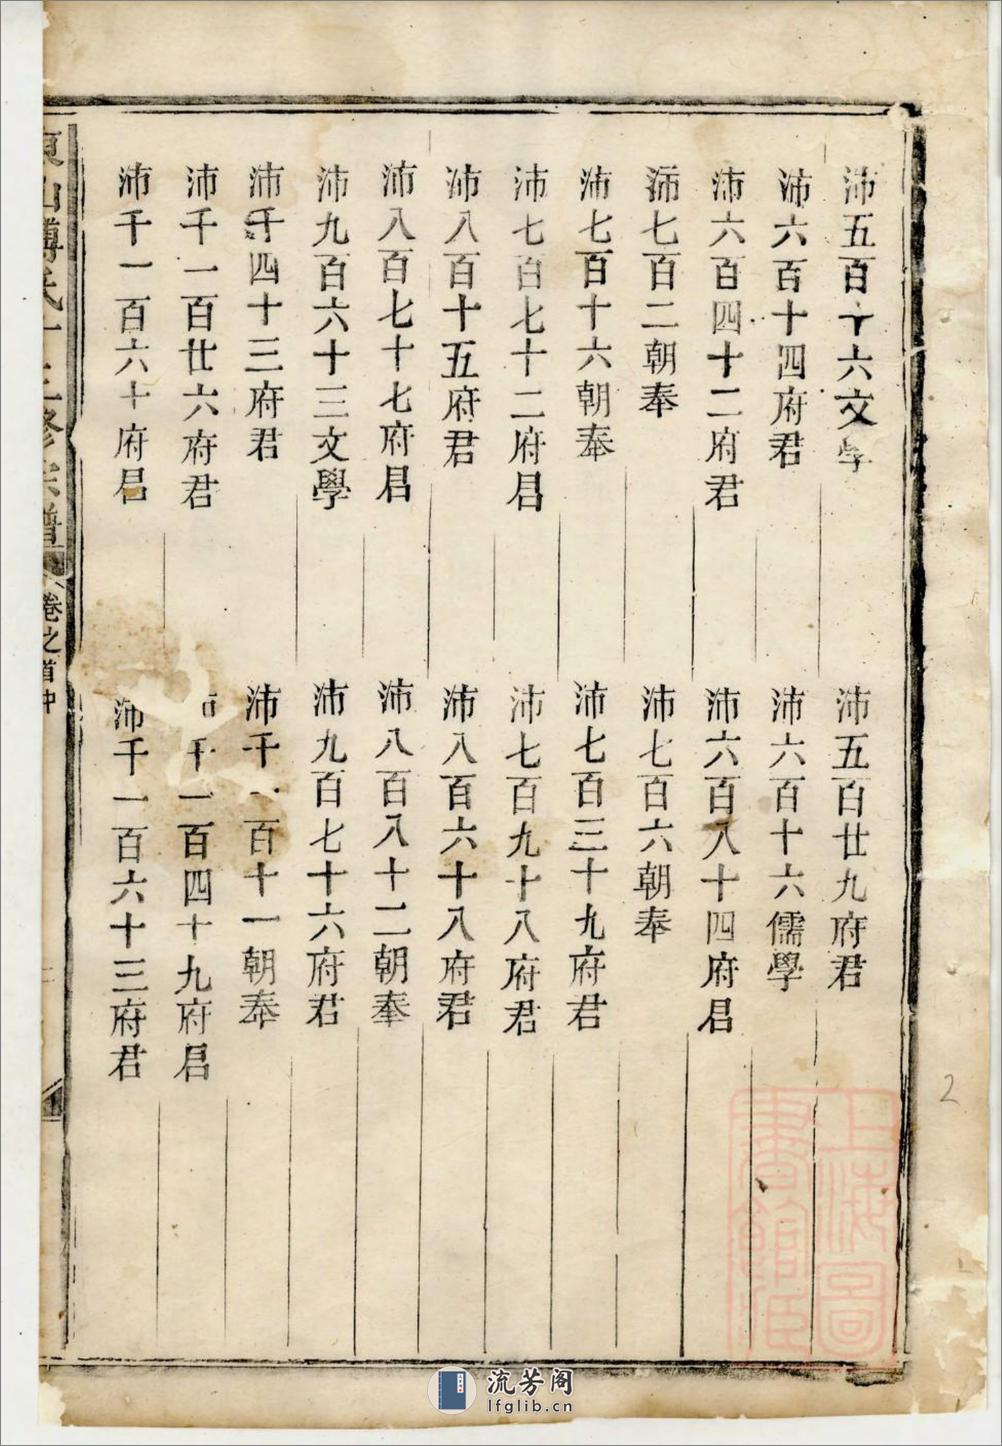 沛五百十六文學
沛五百廿九府君
沛六百十四府君
沛六百十六儒學
沛六百四十二府君
沛六百八十四府君
沛七百二朝奉
沛七百六朝奉
沛七百十六朝奉
沛七百三十九府君
沛七百七十二府君
沛七百九十八府君
沛八百十五府君
沛八百六十八府君
沛八百七十七府君
沛八百八十二朝奉
沛九百六十三文學
沛九百七十六府君
沛千四十三府君
沛千百十一朝奉
沛千一百廿六府君
千一百四十九府君
沛千一百六十府君
沛千一百六十三府君
氏十三修宗譜
卷之首中
上海圖書館藏
2
流芳阁
lfglib.cn